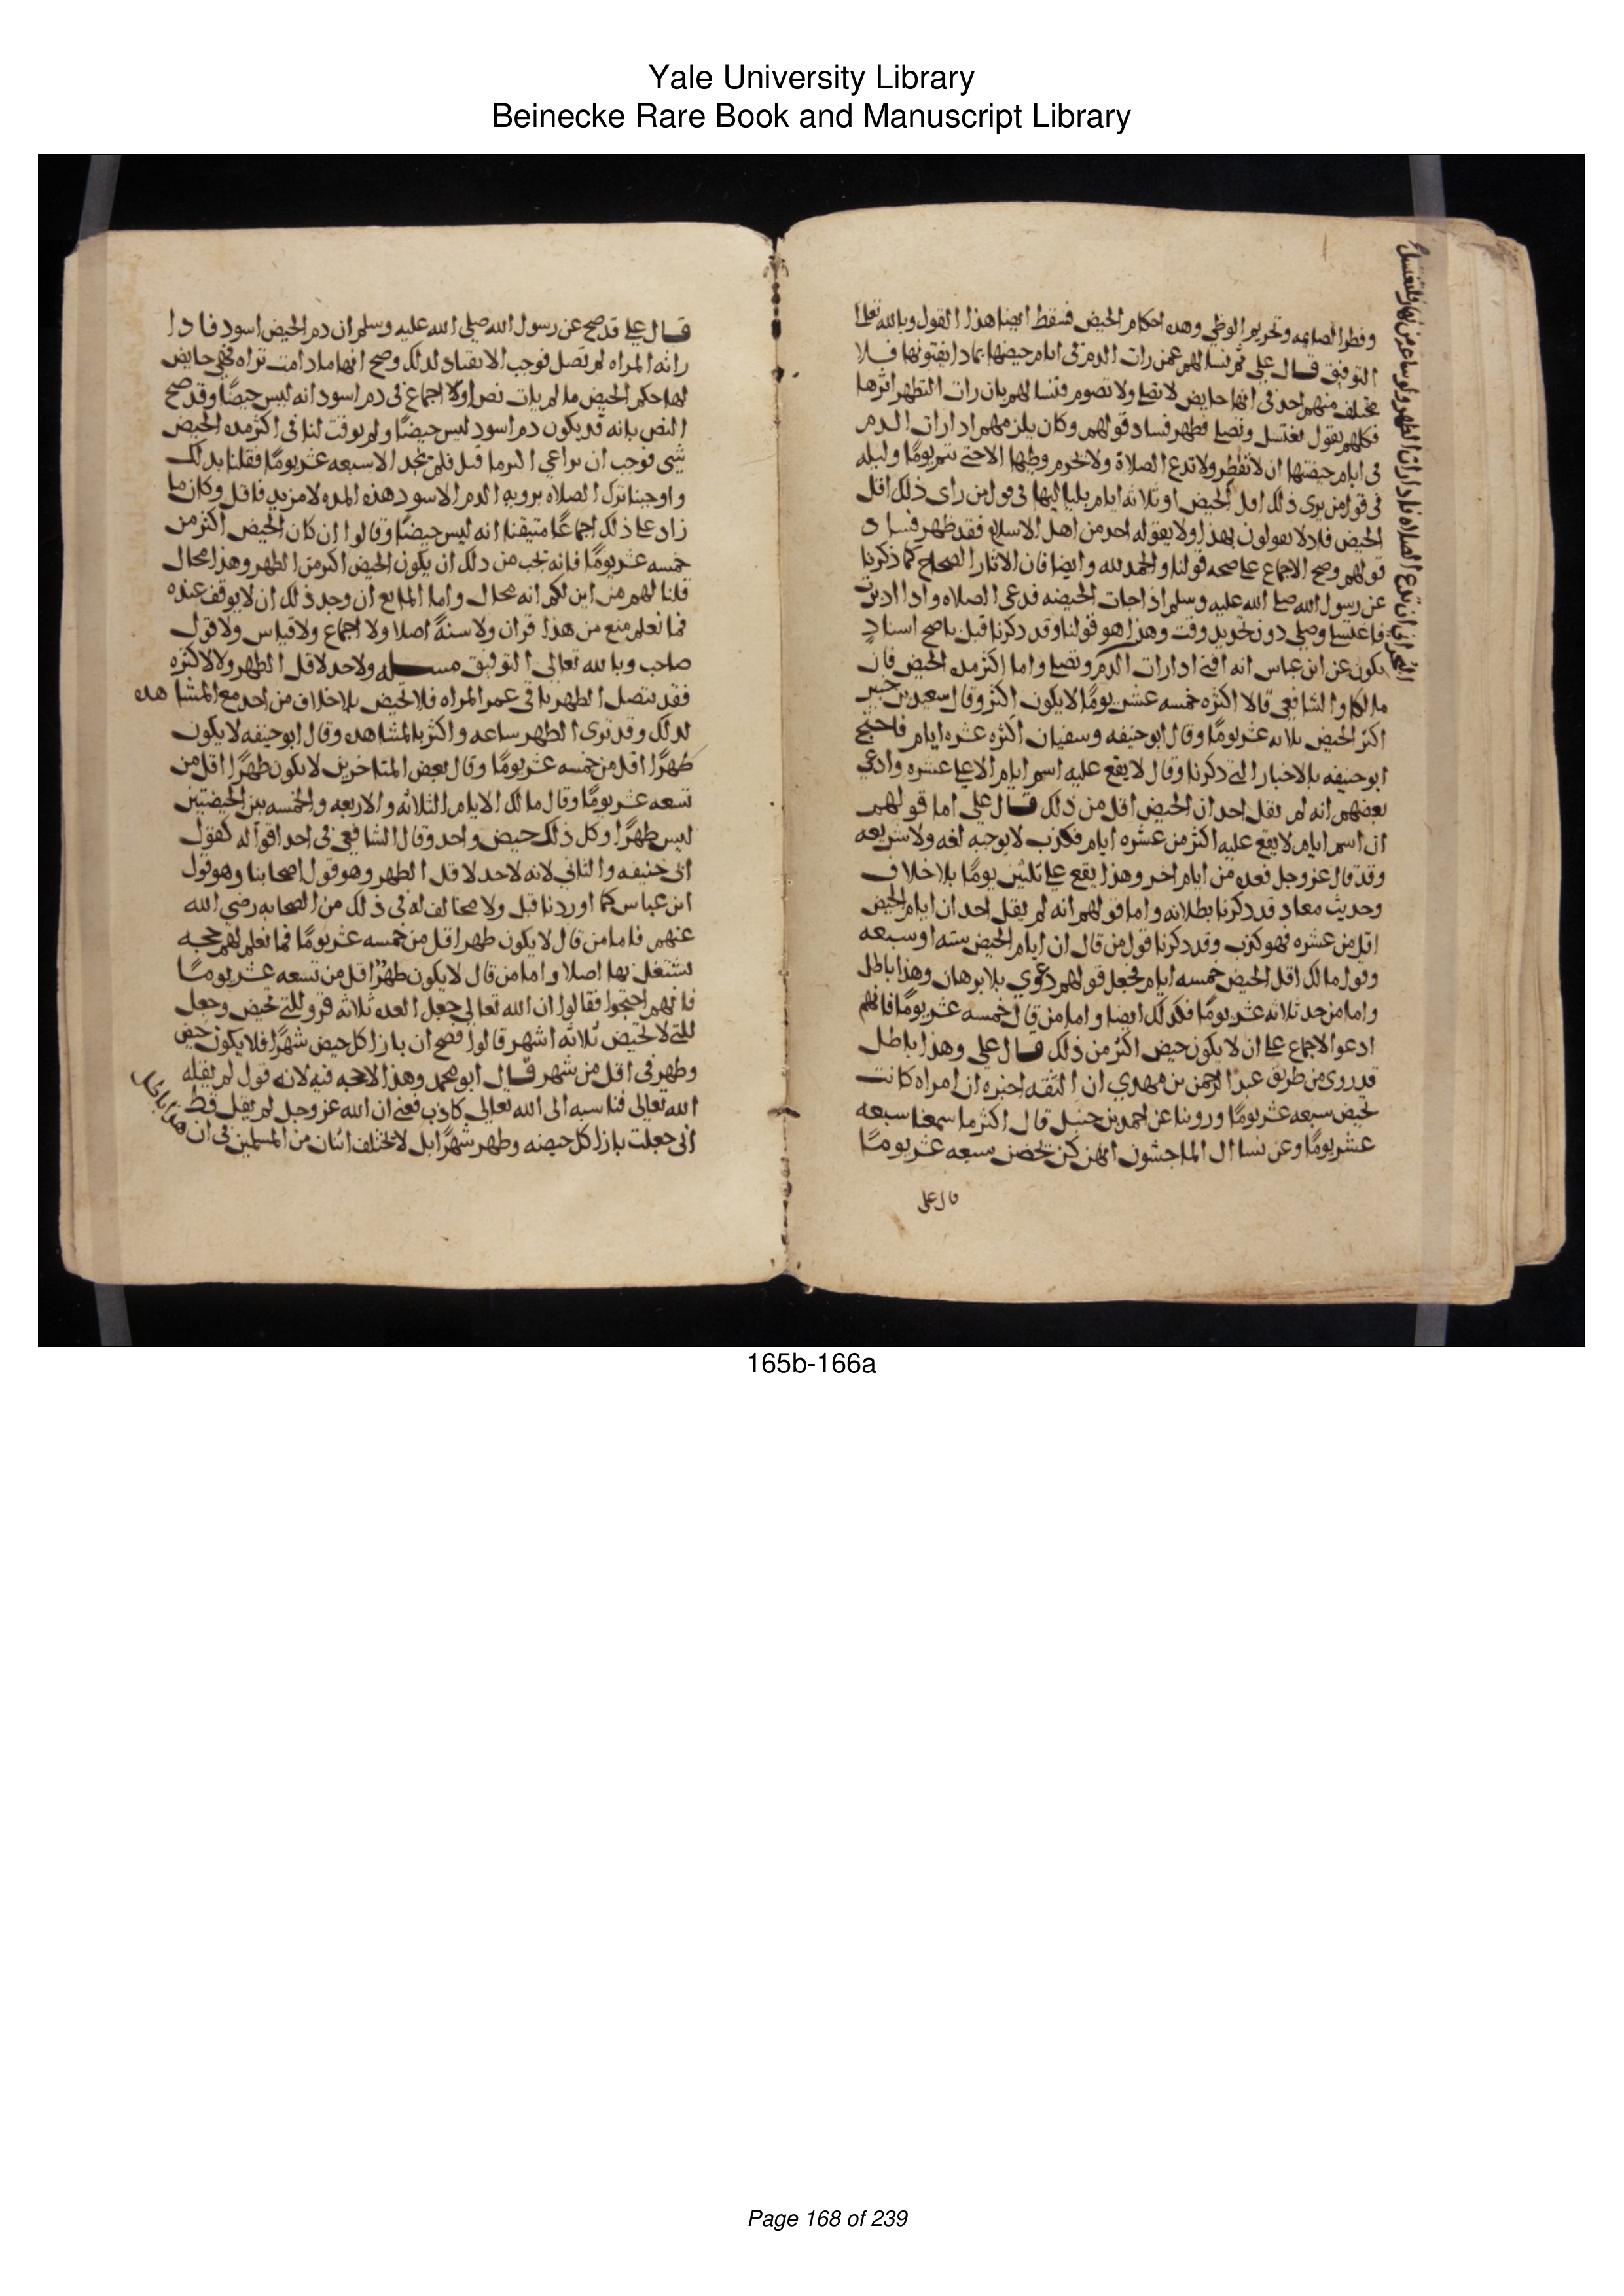 Yale University Library
Beinecke Rare Book and Manuscript Library
وفطر الصايمه وتحريم الوطي وهده احكام الحيض فسقط ايضا هذا القول وبالله تعالى
التوفيق قال علي ثم نسالهم عمن رات الدم في ايام حيضها بماذا يفتونها فلا
يختلف منهم احد في انها حايض لا تصلي ولا تصوم فنسالهم ان رات التطهر اثرها
فكلهم يقول تغتسل وتصلي فظهر فساد قولهم وكان يلزمهم ادا رات الدم
في ايام حيضتها ان لا تفطر ولا تدع الصلاة ولا تحرم وطيها الا حتى تتم يومًا وليله
في قول من يرى ذلك اقل الحيض او ثلاثه ايام بلياليها في قول من راى ذلك اقل
الحيض فاد لا يقولون بهذا ولا يقوله احد من اهل الاسلام فقد ظهر فساد
قولهم وصح الاجماع على صحه قولنا والحمد لله وايضا فان الاثار الصحاح كما ذكرنا
عن رسول الله صلى الله عليه وسلم اذا جات الحيضه فدعي الصلاه وادا ادبرت
فاغتسلي وصلي دون تحديد وقت وهذا هو قولنا وقد دكرنا قبل باصح اسناد
يكون عن ابن عباس انه افتى ادا رات الدم وتصلي واما اكثر مده الحيض فان
مالكا والشافعي قالا اكثره خمسه عشر يومًا لا يكون اكثر وقال سعيد بن جبير
اكثر الحيض ثلاثه عشر يومًا وقال ابو حنيفه وسفيان اكثره عشره ايام فاحتج
ابو حنيفه بالاخبار التي دكرنا وقال لا يقع عليه اسم ايام الا على عشره وادعى
بعضهم انه لم يقل احد ان الحيض اقل من ذلك قال علي اما قولهم
ان اسم ايام لا يقع عليه اكثر من عشره ايام فكذب لا يوجبه لغه ولا شريعه
وقد قال عز وجل فعده من ايام اخر وهذا يقع على ثلثين يومًا بلا خلاف
وحديث معاد قد دكرنا بطلانه واما قولهم انه لم يقل احد ان ايام الحيض
اقل من عشره فهو كذب وقد دكرنا قول من قال ان ايام الحيض سته او سبعه
وقول مالك اقل الحيض خمسه ايام فحصل قولهم دعوي بلا برهان وهذا باطل
واما من حد ثلاثه عشر يومًا فكدلك ايضا واما من قال خمسه عشر يومًا فانهم
ادعوا الاجماع على ان لا يكون حيض اكثر من ذلك قال علي وهذا باطل
قد روى من طريق عبد الرحمن بن مهدي ان الثقه اخبره ان امراه كانت
تحيض سبعه عشر يومًا وروينا عن احمد بن حنبل قال اكثر ما سمعنا سبعه
عشر يومًا وعن نسا ال الماجشون انهن كن تحضن سبعه عشر يومًا
قال علي
قال علي قد صح عن رسول الله صلى الله عليه وسلم ان دم الحيض اسود فادا
راته المراه لم تصل فوجب الانقياد لدلك وصح انها مادامت تراه فهي حايض
لها حكم الحيض ما لم يات نص او اجماع في دم اسود انه ليس حيضًا وقد صح
النص بانه قد يكون دم اسود ليس حيضًا ولم يوقت لنا في اكثر مده الحيض
شي فوجب ان نراعي اكثر ما قيل فلم نجد الا سبعه عشر يومًا فقلنا بدلك
واوجبنا ترك الصلاه برويه الدم الاسود هذه المده لا مزيد فاقل وكان ما
زاد على ذلك اجماعًا متيقنا انه ليس حيضًا وقالوا ان كان الحيض اكثر من
خمسه عشر يومًا فانه يجب من دلك ان يكون الحيض اكثر من الطهر وهذا محال
قلنا لهم من اين لكم انه محال واما المانع ان وجد ذلك ان لا يوقف عنده
فما نعلم منع من هذا قران ولا سنةً اصلا ولا اجماع ولا قياس ولا قول
صاحب وبالله تعالى التوفيق مسله ولا حد لاقل الطهر ولا لاكثره
فقد يتصل الطهر باقي عمر المراه فلا تحيض بلا خلاف من احد مع المشاهده
لدلك وقد ترى الطهر ساعه واكثر بالمشاهده وقال ابو حنيفه لا يكون
طهرًا اقل من خمسه عشر يومًا وقال بعض المتاخرين لا يكون طهرًا اقل من
تسعه عشر يومًا وقال مالك الايام الثلاثه والاربعه والخمسه بين الحيضتين
ليس طهرًا وكل ذلك حيض واحد وقال الشافعي في احد اقواله كقول
ابى حنيفه والثاني لانه لا حد لاقل الطهر وهو قول اصحابنا وهو قول
ابن عباس كما اوردنا قبل ولا مخالف له في ذلك من الصحابه رضي الله
عنهم فاما من قال لا يكون طهرا اقل من خمسه عشر يومًا فما نعلم لهم حجه
نشتغل بها اصلا واما من قال لا يكون طهرًا اقل من تسعه عشر يومًا
فانهم احتجوا فقالوا ان الله تعالى جعل العده ثلاثه قرو للتي تحيض وجعل
للتي لا تحيض ثلاثه اشهر قالوا فصح ان بازا كل حيض شهرًا فلا يكون حيض
وطهر في اقل من شهر قال ابو محمد وهذا لا حجه فيه لانه قول لم يقله
الله تعالى فناسبه الى الله تعالى كاذب نعني ان الله عز وجل لم يقل قط
انى جعلت بازا كل حيضه وطهر شهرًا بل لا يختلف اثنان من المسلمين في ان هذا باطل
165b-166a
Page 168 of 239